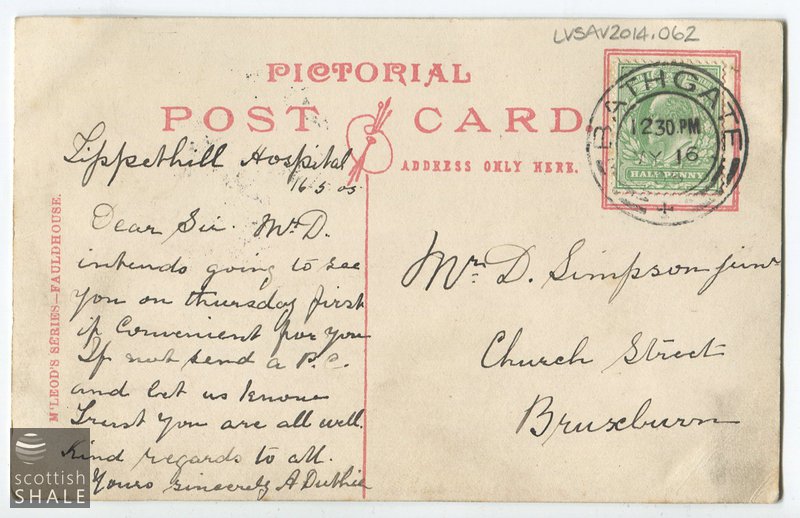 LVSAV2014.062
PICTORIAL
POST CARD
ADDRESS ONLY HERE.
BATHGATE
12.30 PM
MY 16
HALF PENNY
Tippethill Hospital
16.5.05
Dear Sir. Mr D.
intends going to see
you on thursday first
if Convenient for you
If not send a P.C.
and let us know
Trust you are all well.
Kind regards to all.
Yours sincerely A Duthie
Mr D. Simpson junr
Church Street
Bruxburn
M'LEOD'S SERIES—FAULDHOUSE.
scottish
SHALE